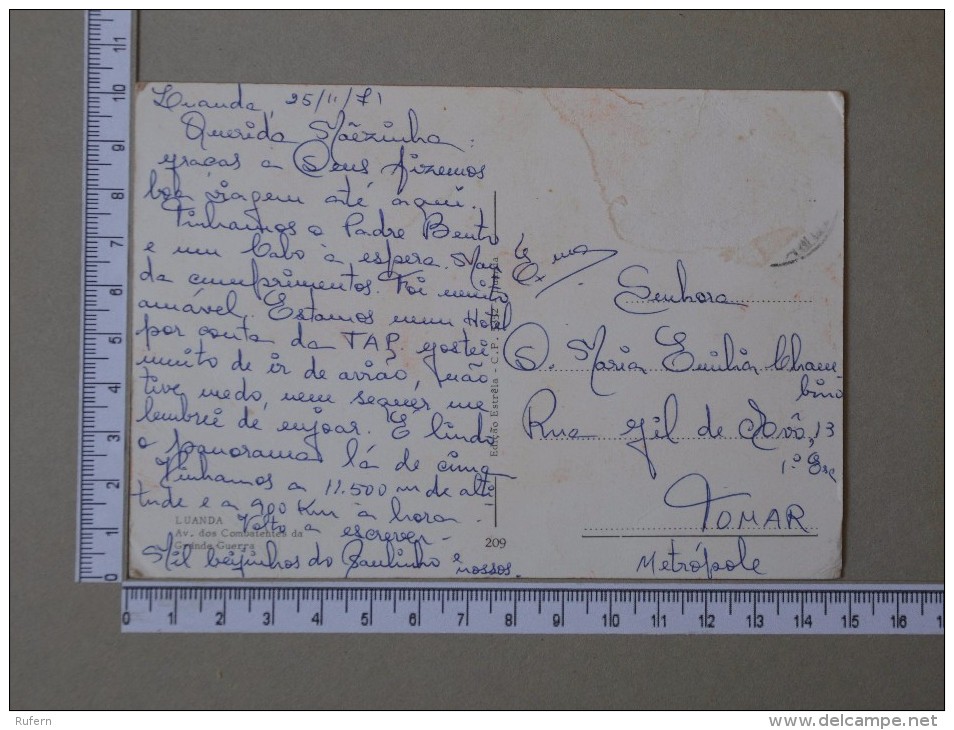 Luanda, 25/11/71
Querida Mãezinha:
graças a Deus fizemos
boa viagem até aqui.
Tinhamos o Padre Bento
e um Cabo à espera. Man
da cumprimentos. Foi muito
amável. Estamos num Hotel
por conta da TAP. gostei
muito de ir de avião, não
tive medo, nem sequer me
lembrei de enjoar. É lindo
o panorama lá de cima
Vinhamos a 11.500 m de alti
tude e a 900 Km à hora.
Volto a escrever.
Mil beijinhos do Paulinho e nossos.
LUANDA
Av. dos Combatentes da
Grande Guerra
209
Edição Estrêla - C.P.
Ex.ma
Senhora
D. Maria Emilia Cham
bino
Rua Gil de Avô, 13
1.º Esq
TOMAR
Metrópole
0 1 2 3 4 5 6 7 8 9 10 11 12 13 14 15 16
1 2 3 4 5 6 7 8 9 10 11
Rufern
www.delcampe.net